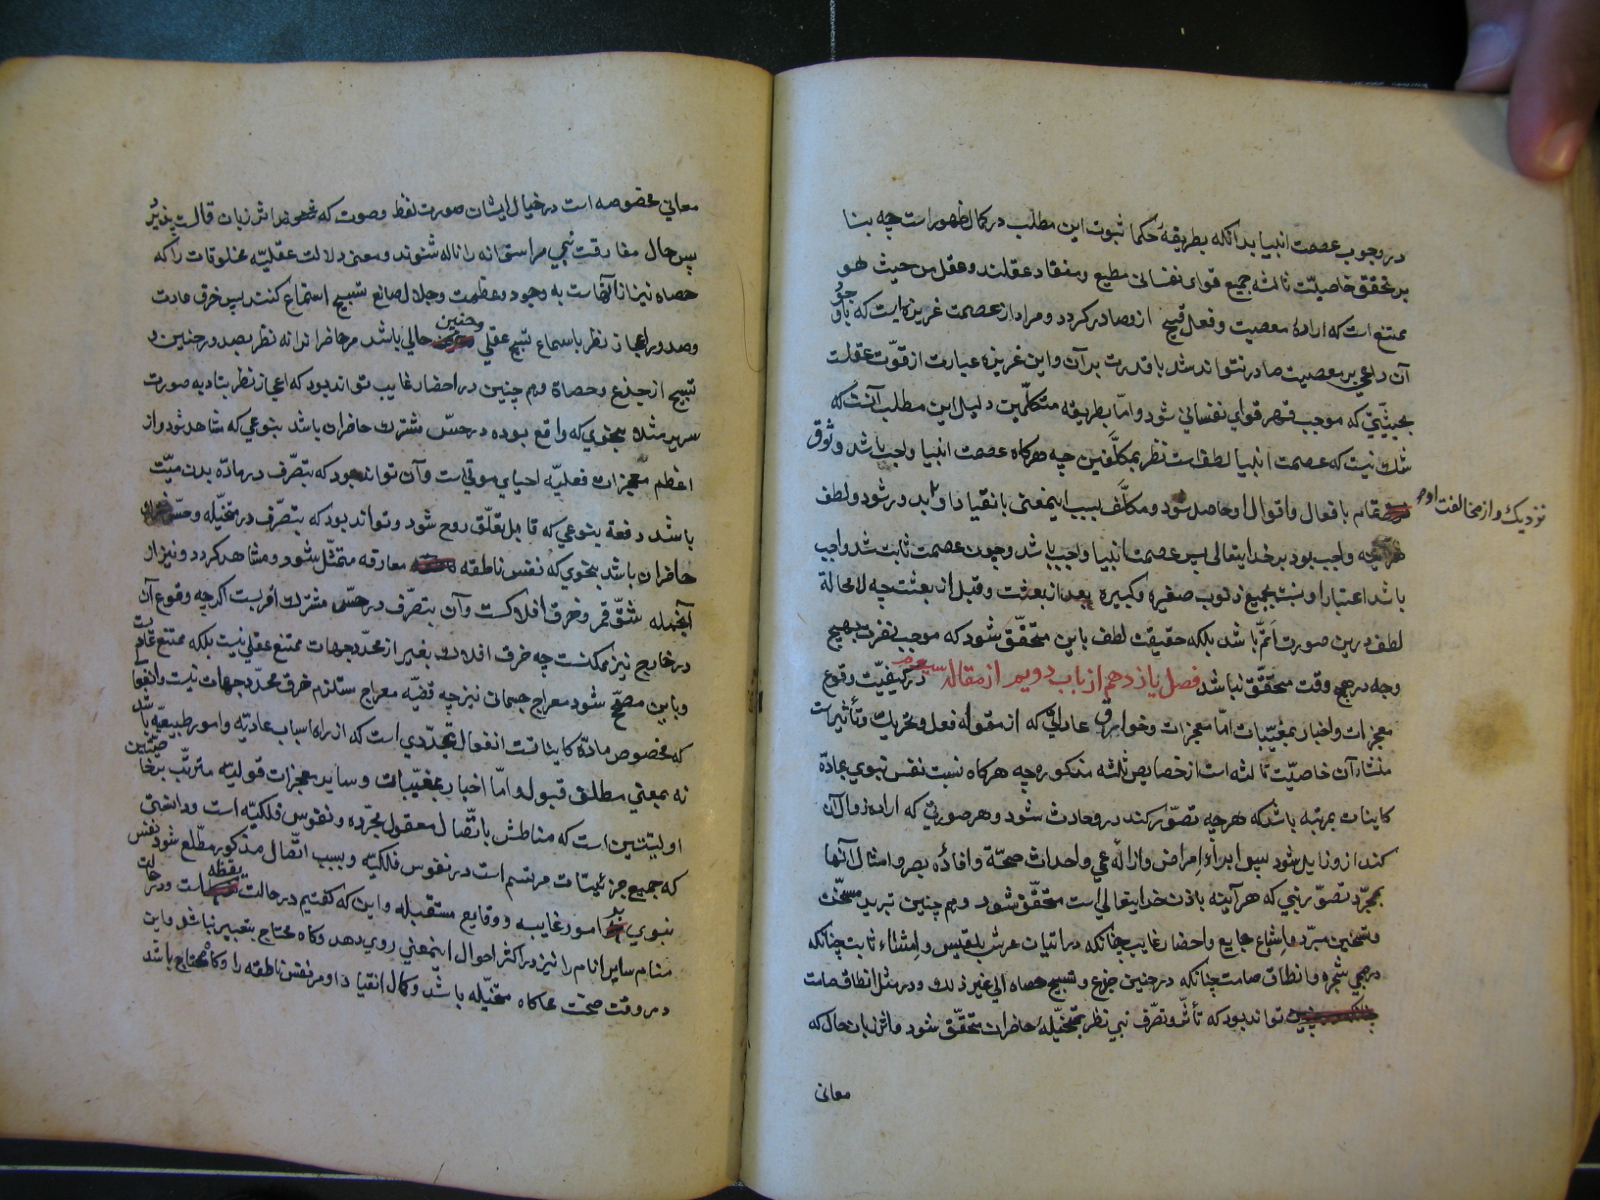 در وجوب عصمت انبیا بدانکه بطریقهٔ حکما ثبوت این مطلب در کمال ظهور است چه بنا
بر تحقق خاصیّت ثالثه جمیع قوای نفسانی مطیع و منقاد عقلند و عقل من حیث هو
ممتنع است که ارادهٔ معصیت و فعل قبیح ازو صادر گردد و مراد از عصمت غریزه‌ایست که با وجود
آن داعی بر معصیت صادر نتواند شد با قدرت بر آن و این غریزه عبارت از قوّت عقلست
بحیثیّتی که موجب قهر قوای نفسانی شود و امّا بطریقه متکلّمین دلیل این مطلب آنست که
شک نیست که عصمت انبیا لطف است نظر بمکلّفین چه هرگاه عصمت انبیا واجب باشد وثوق
تمام بافعال و اقوال او حاصل شود و مکلّف بسبب اینمعنی بانقیاد او نزدیک و از مخالفت او دور شود و لطف
چه واجب بود بر خدایتعالی پس عصمت انبیا واجب باشد و چون عصمت ثابت شد واجب
باشد اعتبار او نسبت بجمیع ذنوب صغیره و کبیره بعد از بعثت و قبل از بعثت چه لا محالة
لطف درین صورت اتمّ باشد بلکه حقیقت لطف باین متحقّق شود که موجب نفرت بهیچ
وجه در هیچ وقت متحقّق نباشد فصل یازدهم از باب دویم از مقاله سیوم در کیفیّت وقوع
معجزات و اخبار بمغیّبات امّا معجزات و خوارق عاداتی که از مقوله فعل و تحریک و تأثیرات
منشاء آن خاصیّت ثالثه است از خصایص ثلثه مذکوره چه هرگاه نسبت نفس نبوی بمادّهٔ
کاینات بمرتبه باشد که هرچه تصوّر کند در و حادث شود و هر صورتی که اراده زوال آن
کند ازو زایل شود پس ابراء امراض و ازالهٔ عمی و احداث صحّة و افادهٔ بصر و امثال آنها
بمجرّد تصوّر نبی که هر آینه باذن خدایتعالی است متحقّق شود و هم چنین تبرید مسخّن
و تسخین مبرّد و اشباع جایع و احضار غایب چنانکه در اتیان عرش بلقیس و امشاء ثابت چنانکه
در مجی شجره و انطاق صامت چنانکه در حنین جزع و تسبیح حصاه الی غیر ذلک و در مثل انطاق صامت
تواند بود که تأثیر و تصرّف نبی نظر بمتخیّلهٔ حاضران متحقّق شود و اثر زبان حال که
معانی
معانی مخصوصه است در خیال ایشان صورت لفظ و صوت که اثر زبان قالست پذیرد
پس حال مفارقت نبی مر استوانه را ناله شنوند و معنی دلالت عقلیّه مخلوقات را که
حصاه نیز از آنهاست به وجود و عظمت و جلال صانع تسبیح استماع کنند پس خرق عادت
و صدور اعجاز نظر باسماع تسبیح عقلی و حنین حالی باشد مر حاضرانرا نه نظر بصدور حنین و
تسبیح از جذع و حصاة و هم چنین در احضار غایب تواند بود که اعجاز نظر بتادیه صورت
سریر مثلا بنحوی که واقع بوده در حسّ مشترک حاضران باشد بنوعی که مشاهد شود و از
اعظم معجزات فعلیّه احیای موتی است و آن تواند بود که بتصرّف در مادّه بدن میّت
باشد دفعة بنوعی که قابل تعلّق روح شود و تواند بود که بتصرف در متخیّله و حسّ
حاضران باشد بنحوی که نفس ناطقه مفارقه متمثّل شود و مشاهد گردد و نیز از
آنجمله شقّ قمر و خرق افلاکست و آن بتصرّف در حسّ مشترک اقربست اگرچه وقوع آن
در خارج نیز ممکنست چه خرق افلاک بغیر از محدّد جهات ممتنع عقلی نیست بلکه ممتنع عادیست
و باین مصحّح شود معراج جسمانی نیز چه قضیّه معراج مستلزم خرق محدّد جهات نیست و
که مخصوص مادّهٔ کاینات است انفعال تجدّدی است که از راه اسباب عادیّه و امور طبیعیّه باشد
نه بمعنی مطلق قبول و امّا اخبار بمغیّبات و سایر معجزات قولیّه مترتّب بر خاصیّتین
اولیتین است که مناطش باتّصال بعقول مجرّده و نفوس فلکیّه است و دانستی
که جمیع جزئیّات مرتسم است در نفوس فلکیّه و بسبب اتّصال مذکور مطّلع شود نفس
نبوی بر امور غایبه و وقایع مستقبله و این که گفتیم در حالت یقظه است و در حالت
منام سایر انام را نیز در اکثر احوال اینمعنی روی دهد و گاه محتاج بتعبیر نباشد و این
در وقت صحّت محاکاه متخیّله باشد و کمال انقیاد او مر نفس ناطقه را و گاه محتاج باشد